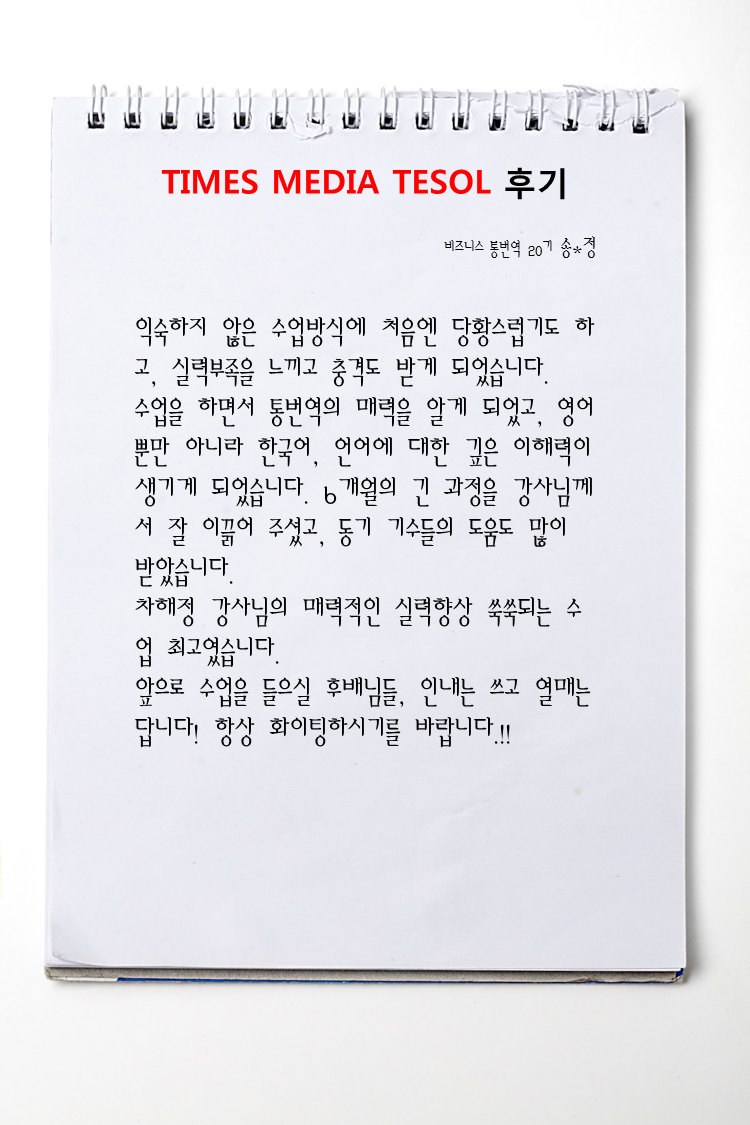 TIMES MEDIA TESOL 후기
비즈니스 통번역 20기 송*정
익숙하지 않은 수업방식에 처음엔 당황스럽기도 하
고, 실력부족을 느끼고 충격도 받게 되었습니다.
수업을 하면서 통번역의 매력을 알게 되었고, 영어
뿐만 아니라 한국어, 언어에 대한 깊은 이해력이
생기게 되었습니다. 6개월의 긴 과정을 강사님께
서 잘 이끌어 주셨고, 동기 기수들의 도움도 많이
받았습니다.
차해정 강사님의 매력적인 실력향상 쑥쑥되는 수
업 최고였습니다.
앞으로 수업을 들으실 후배님들, 인내는 쓰고 열매는
답니다! 항상 화이팅하시기를 바랍니다!!!